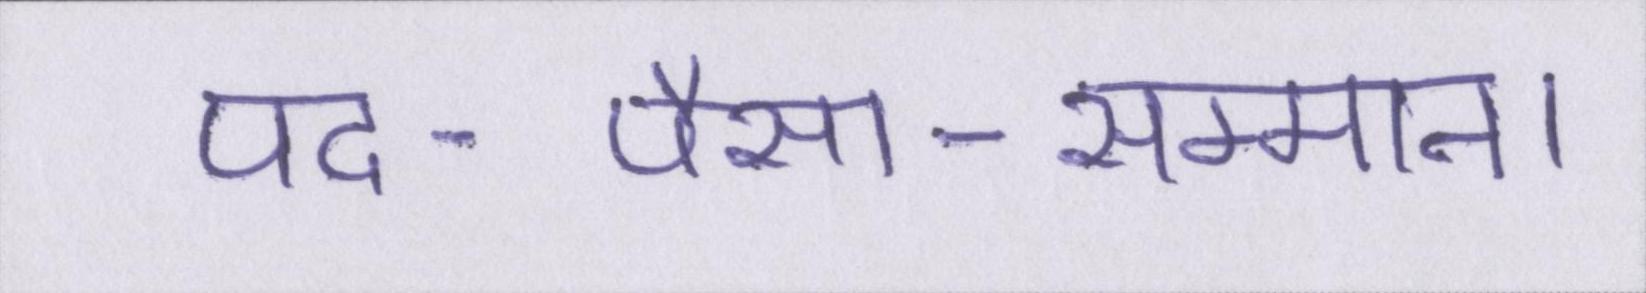 पद - पैसा - सम्मान।